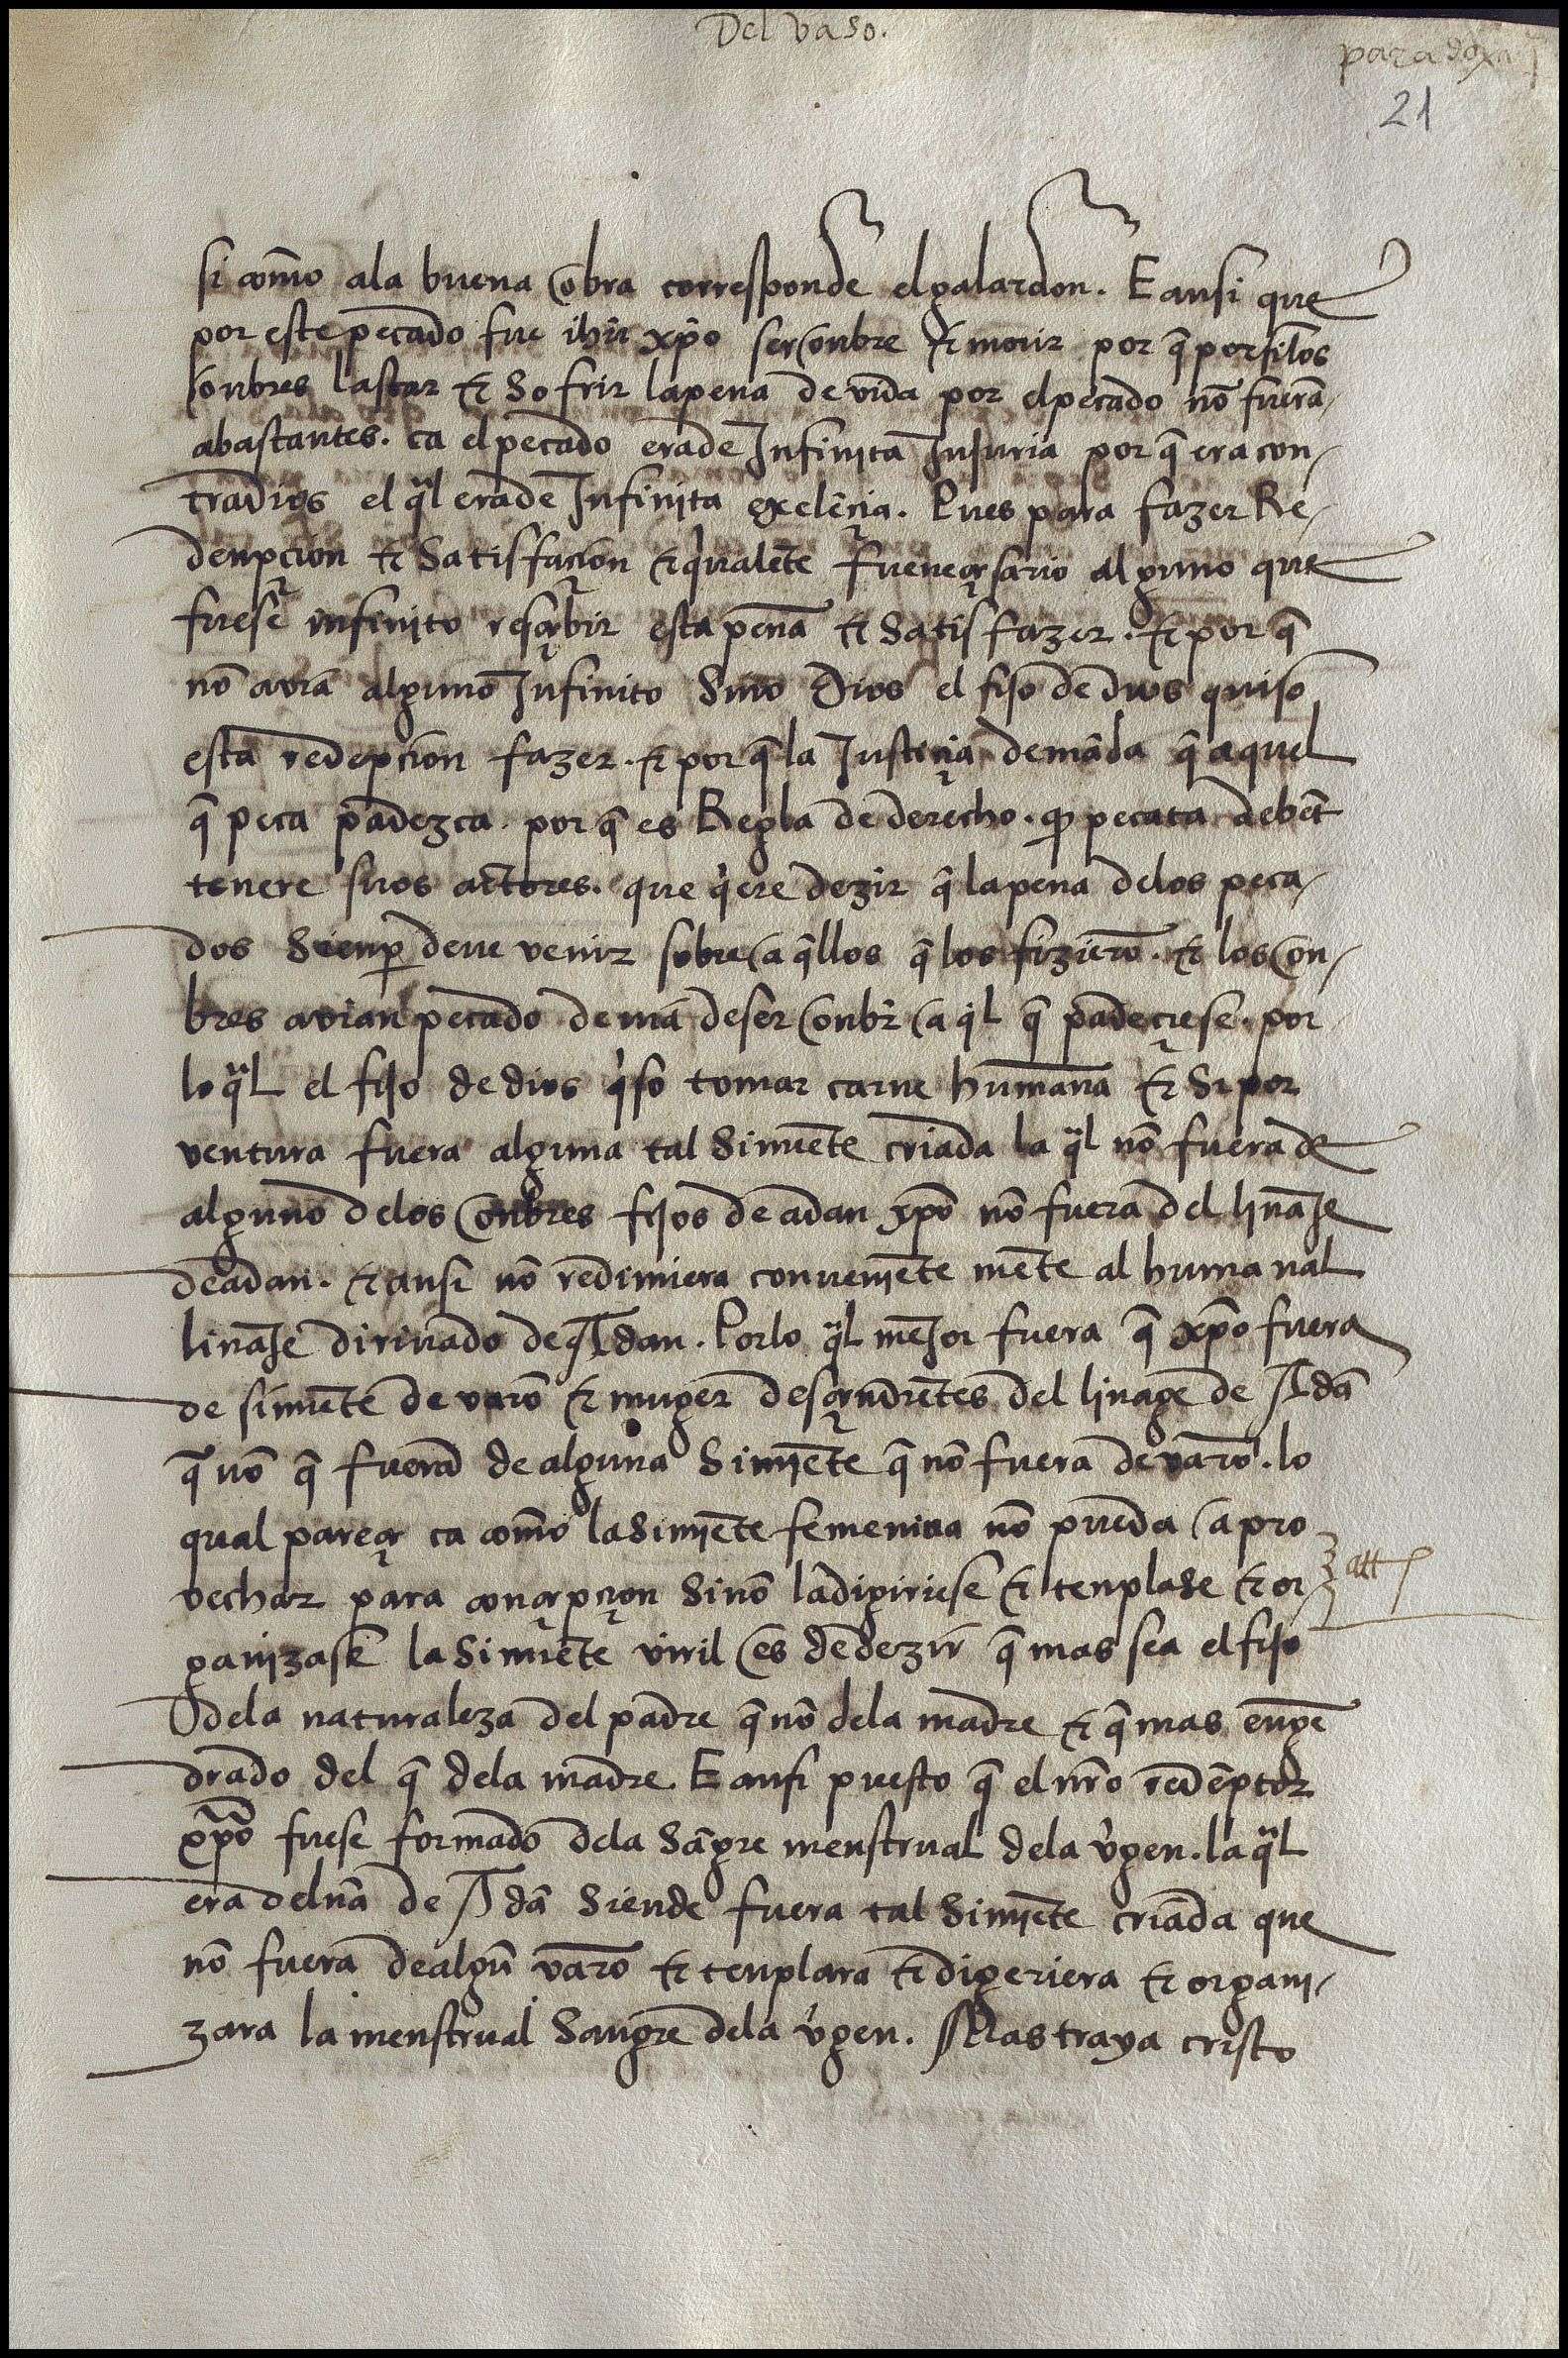 Del vaso.
paradoxa j
21
si com̃o ala buena obra corresponde el galardon. E ansi que
por este pecado fue ihũ xp̃o ser onbre & morir por q̃ por silos
onbres lastar & sofrir lapena devida por elpecado nõ fuerã
abastantes. ca el pecado erade Infinita Injuria por q̃ era con-
tradios el q̃l erade Infinita exelẽçia. Pues para fazer Re-
denpcion & Satisfacion equivalẽte fueneçesario alguno que
fuese infinito reçebir esta pena & Satisfazer. & por q̃
nõ avia alguno Infinito Sino Dios el fijo de dios quiso
esta redẽpcion fazer. & por q̃ la Justiçia demãda q̃ aquel
q̃ peca padezca. por q̃ es Regla de derecho. q̃ pecata debẽt
tenere suos actores. que q̃ere dezir q̃ lapena delos peca-
dos Sienp̃ deve venir sobre aq̃llos q̃ los fizierõ. & los on-
bres avian pecado demã deser onbr̃ aq̃l q̃ padeçiese. por
lo q̃l el fijo de dios q̃so tomar carne humana & Si por
ventura fuera alguna tal Simiẽte criada la q̃l nõ fuera de
alguno delos onbres fijos de adan xp̃o nõ fuera del linaje
deadan. & ansi nõ redimiera conveniẽte mẽte al humanal
linaje dirivado de Adan. Porlo q̃l mejor fuera q̃ xp̃o fuera
de simiẽte de varõ & muger desçendiẽtes del linage de Adã
q̃ nõ q̃ fuera de alguna Simiẽte q̃ nõ fuera de varõ. lo
qual pareçe ca com̃o la Simiẽte femenina nõ pueda apro
vechar para conçepçion Sinõ ladigiriese & tenplase & or
att
ganizase la Simiẽte viril es dedezir q̃ mas sea el fijo
dela naturaleza del padre q̃ nõ dela madre & q̃ mas engẽ
drado del q̃ dela madre. E ansi puesto q̃ el nr̃o redẽptor
xp̃o fuese formado dela Sãgre menstrual dela vĩgen. la q̃l
era delnã de Adã Siende fuera tal Simiẽte criada que
nõ fuera dealgũ varõ & tenplara & digeriera & organi-
zara la menstrual Sangre dela vĩgen. Mas traya cristo